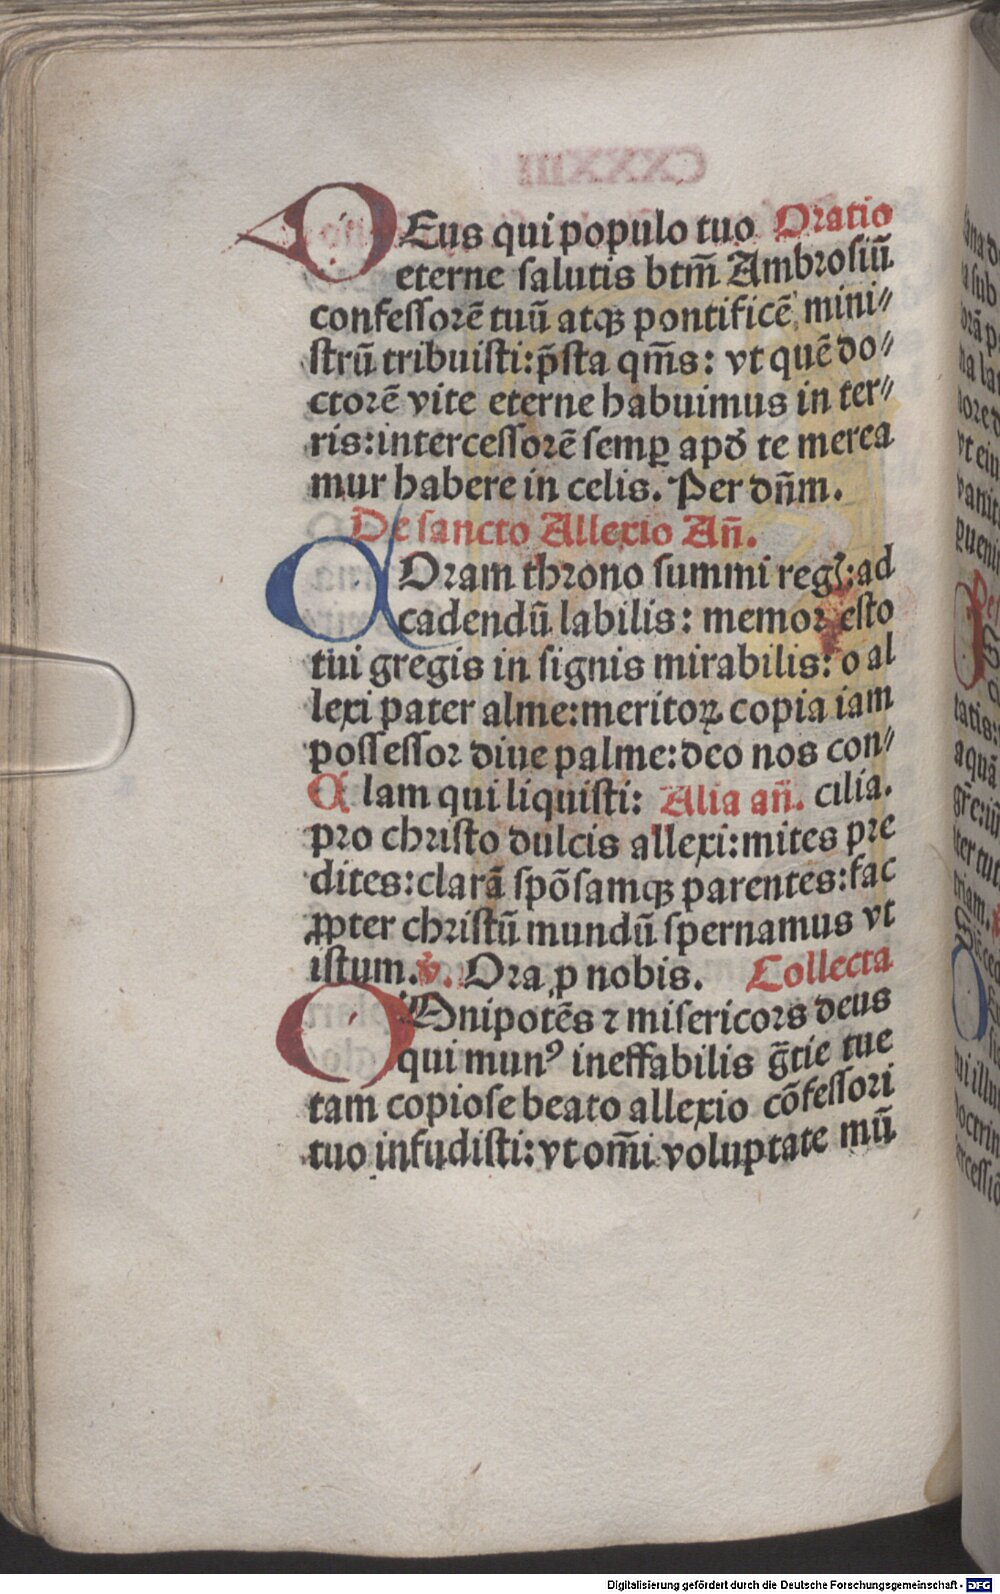 DEus qui populo tuo Oratio
eterne salutis btm̄ Ambrosiū
confessorē tuū atqꝫ pontificē mini⸗
strū tribuisti: p̄sta qm̄s: vt quē do⸗
ctorē vite eterne habuimus in ter⸗
ris: intercessorē semꝑ apđ te merea
mur habere in celis. Per dn̄m.
De sancto Allexio An̄.
ADoram throno summi regꝭ: ad
cadendū labilis: memor esto
tui gregis in signis mirabilis: o al
lexi pater alme: meritoꝝ copia iam
possessor diue palme: deo nos con⸗
Alam qui liquisti: Alia an̄. cilia.
pro christo dulcis allexi: mites pre
dites: clarā spōsamqꝫ parentes: fac
ꝓpter christū mundū spernamus vt
istum. ꝟ. Ora ꝓ nobis. Collecta
OOnipotēs ⁊ misericors deus
qui munꝰ ineffabilis gr̄tie tue
tam copiose beato allexio cōfessori
tuo infudisti: vt om̄i voluptate mū
Digitalisierung gefördert durch die Deutsche Forschungsgemeinschaft - DFG